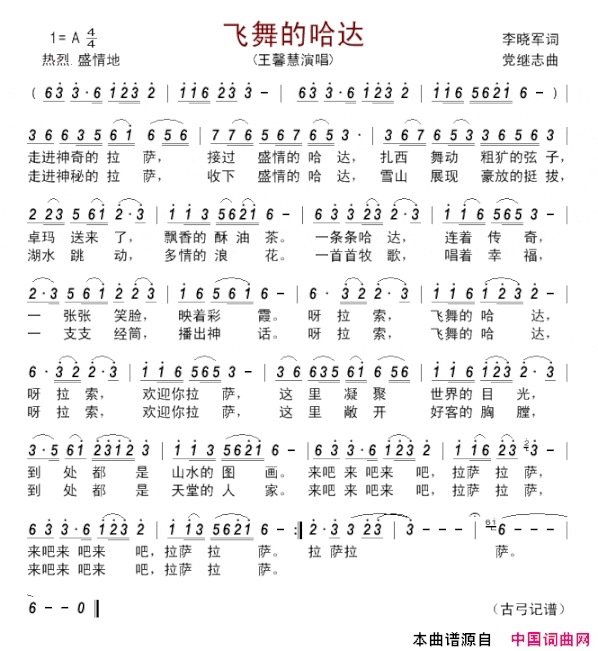 飞舞的哈达
1= A 4/4
热烈 盛情地
(王馨慧演唱)
李晓军词
党继志曲
( 6 3 3·6 1 2 3 2 | 1 1 6 2 3 3 - | 6 3 3·6 1 2 3 2 | 1 1 6 5 6 2 1 6 - ) |
3 6 6 3 5 6 1 6 5 6 | 7 7 6 5 6 7 6 5 3· | 3 6 7 6 5 3 3 6 5 6 3 |
走进神奇的 拉 萨, 接过 盛情的 哈 达, 扎西 舞动 粗犷的弦 子,
走进神秘的 拉 萨, 收下 盛情的 哈 达, 雪山 展现 豪放的挺 拔,
2 2 3 5 6 1 2·3 | 1 1 3 5 6 2 1 6 - | 6 3 3 2 3 2·3 | 1 1 6 5 6 5 3 - |
卓玛 送来 了, 飘香的 酥 油 茶。 一条条哈 达, 连着 传 奇,
湖水 跳 动, 多情的 浪 花。 一首首牧 歌, 唱着 幸 福,
2·3 5 6 1 2 2 3 | 1 1 6 5 6 1 6 - | 6·3 2 2·3 | 1 1 6 1 2 3 2 - |
一 张张 笑脸, 映着彩 霞。 呀 拉 索, 飞舞的 哈 达,
一 支支 经筒, 播出神 话。 呀 拉 索, 飞舞的 哈 达,
6·3 2 2·3 | 1 1 6 5 6 5 3 - | 6 3 3 5 6 1 6 5 6 | 1 1 6 1 2 3 2·3 |
呀 拉 索, 欢迎你 拉 萨, 这 里 凝 聚 世界的 目 光,
呀 拉 索, 欢迎你 拉 萨, 这 里 敞 开 好客的 胸 膛,
3·5 6 1 2 3 1 2 3 | 1 1 3 5 6 2 1 6 - | 6 3 3·6 1 2 3 2 | 1 1 6 2 3 3 - |
到 处 都 是 山水的 图 画。 来吧来 吧来 吧, 拉萨 拉萨,
到 处 都 是 天堂的 人 家。 来吧来 吧来 吧, 拉萨 拉萨,
6 3 3·6 1 2 3 2 | 1 1 3 5 6 2 1 6 - :| 2·3 3 2 3 | 3 - - - | 6 - - - |
来吧来 吧来 吧, 拉萨 拉 萨。 拉 萨拉 萨。
来吧来 吧来 吧, 拉萨 拉 萨。
6 - - 0 ‖
(古弓记谱)
本曲谱源自 中国词曲网